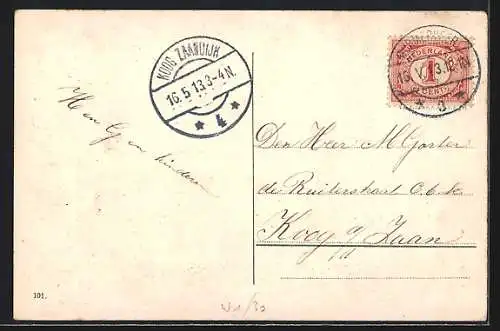 KOOG ZAANDIJK
16.5.13.3-4N.
4
NEDERLAND
1
CENT
H en G en kinderen
Den Heer M Goster
de Ruiterstraat
Koog a/ Zaan
101.